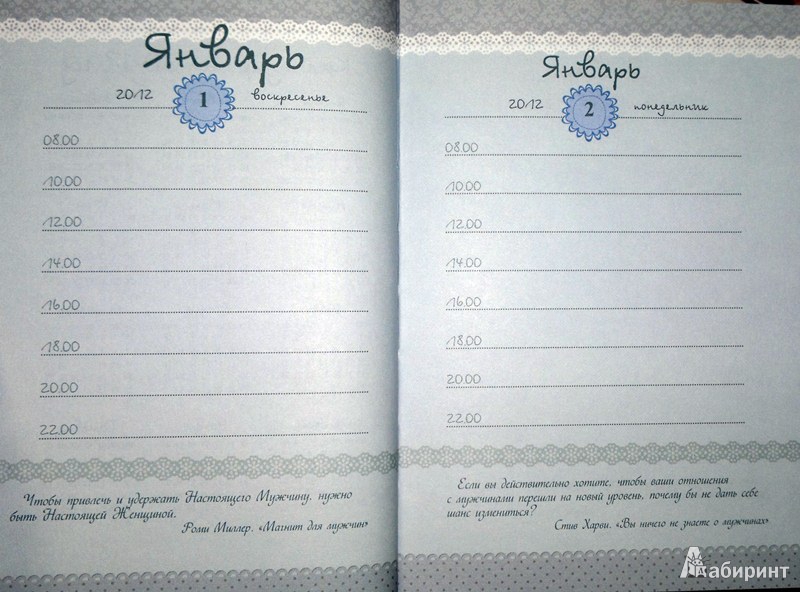 Январь
2012 1 воскресенье
08.00
10.00
12.00
14.00
16.00
18.00
20.00
22.00
Чтобы привлечь и удержать Настоящего Мужчину, нужно
быть Настоящей Женщиной.
Роми Миллер, «Магнит для мужчин»
Январь
2012 2 понедельник
08.00
10.00
12.00
14.00
16.00
18.00
20.00
22.00
Если вы действительно хотите, чтобы ваши отношения
с мужчинами перешли на новый уровень, почему бы не дать себе
шанс измениться?
Стив Харви, «Вы ничего не знаете о мужчинах»
Лабиринт